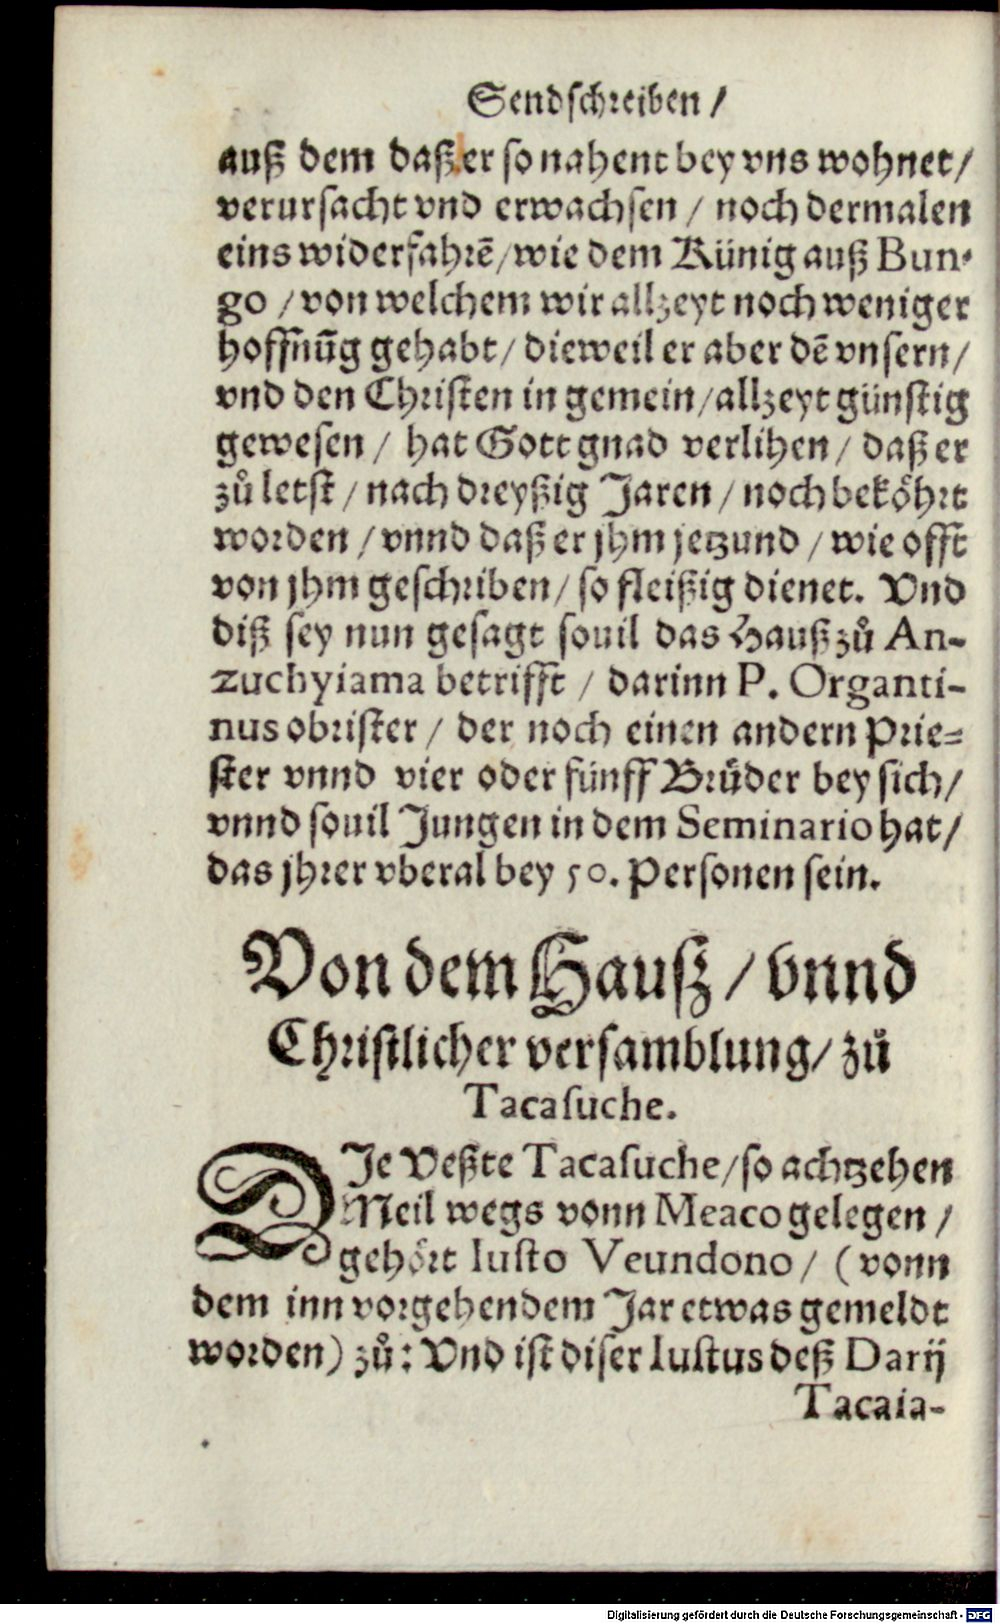 Sendschreiben /
auß dem daß er so nahent bey vns wohnet /
verursacht vnd erwachsen / noch dermalen
eins widerfahrẽ / wie dem Künig auß Bun-
go / von welchem wir allzeyt noch weniger
hoffnũg gehabt / dieweil er aber dẽ vnsern /
vnd den Christen in gemein / allzeyt günstig
gewesen / hat Gott gnad verlihen / daß er
zů letst / nach dreyßig Jaren / noch beköhrt
worden / vnnd daß er jhm jetzund / wie offt
von jhm geschriben / so fleißig dienet. Vnd
diß sey nun gesagt souil das Hauß zů An-
zuchyiama betrifft / darinn P. Organti-
nus obrister / der noch einen andern Prie-
ster vnnd vier oder fünff Brüder bey sich /
vnnd souil Jungen in dem Seminario hat /
das jhrer vberal bey 50. Personen sein.
Von dem Hauß / vnnd
Christlicher versamblung / zů
Tacasuche.
DJe Veßte Tacasuche / so achtzehen
Meil wegs vonn Meaco gelegen /
gehört Iusto Veundono / (vonn
dem inn vorgehendem Jar etwas gemeldt
worden) zů: Vnd ist diser Iustus deß Darij
Tacaia-
Digitalisierung gefördert durch die Deutsche Forschungsgemeinschaft - DFG